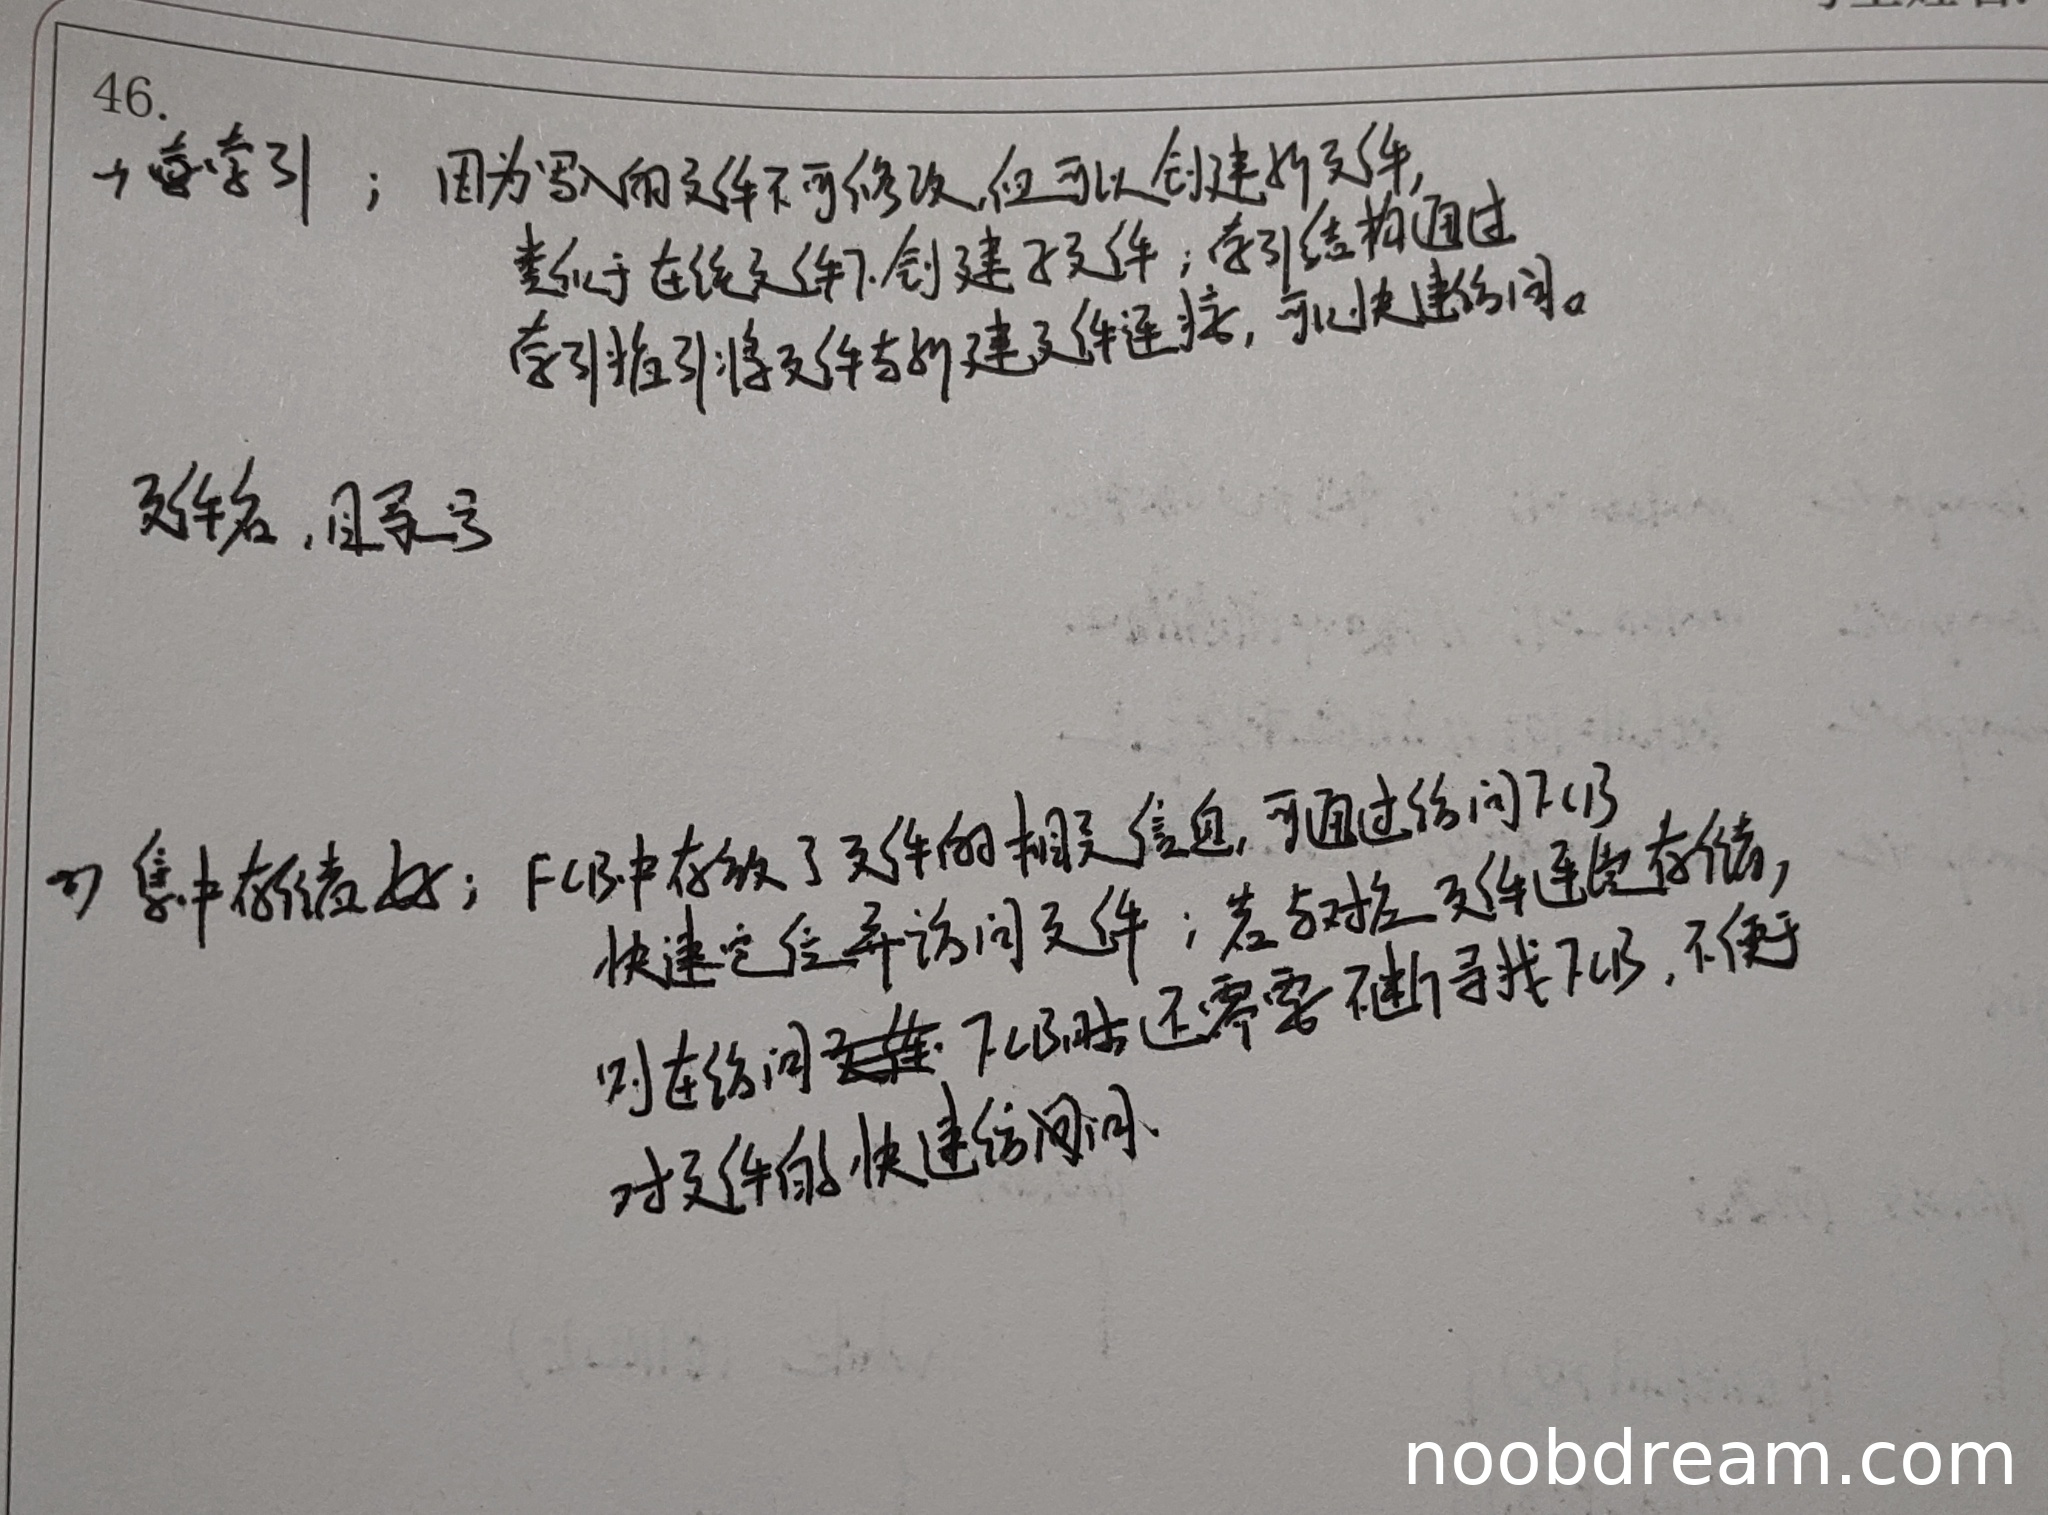 46.
索引 ; 因为写入的文件不可修改,但可以创建新文件,
类似于在线文件下创建子文件;索引结构通过
索引指引将文件与新建文件连接,可以快速访问。
文件名,目录号
2) 集中存储好; FCB中存放了文件的相关信息,可通过访问FCB
快速定位并访问文件;若与对应文件连续存储,
则在访问 FCB时还需要不断寻找FCB,不便于
对文件的快速访问.
noobdream.com